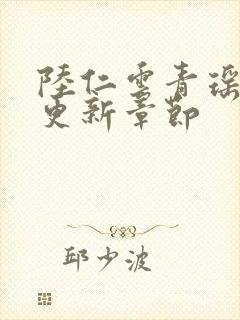 陸仁雲青瑶
更新章節
邱少波